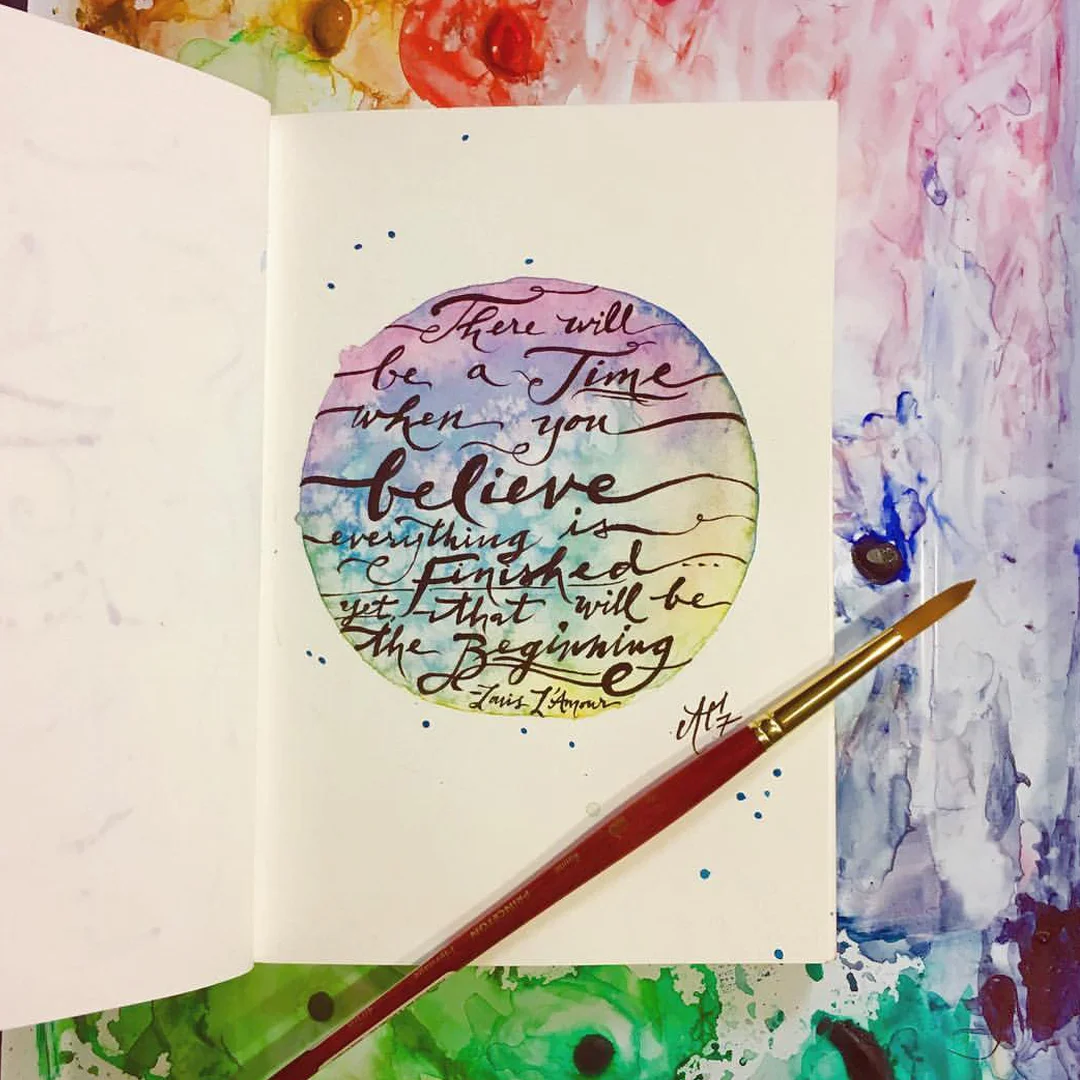 There will
be a Time
when you
believe
everything is
Finished...
yet, that will be
the Beginning
-Louis L'Amour
PRINCETON